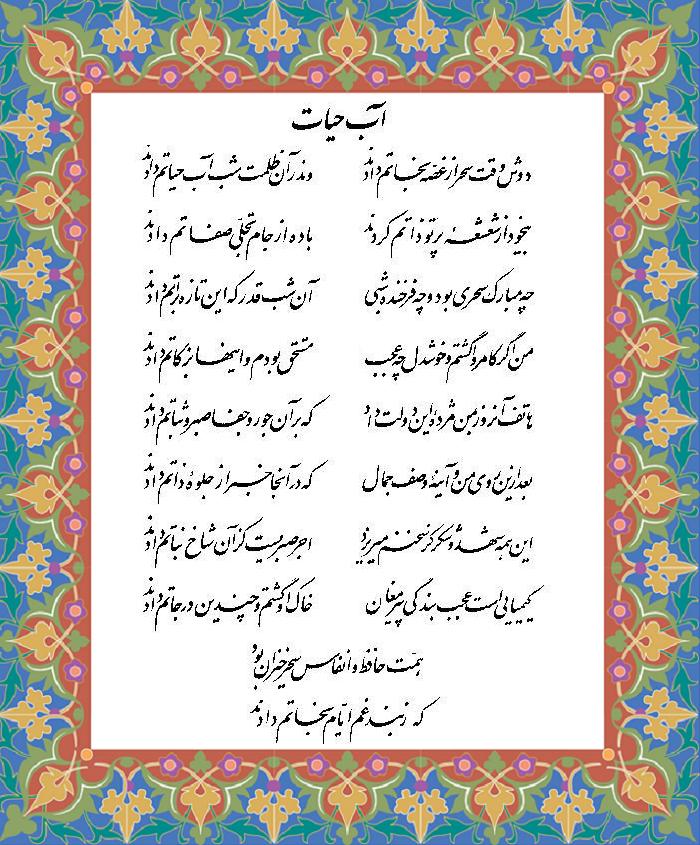 آب حیات
دوش وقت سحر از غصّه نجاتم دادند وندر آن ظلمت شب آب حیاتم دادند
بیخود از شعشعهٔ پرتو ذاتم کردند باده از جام تجلّی صفاتم دادند
چه مبارک سحری بود و چه فرخنده شبی آن شب قدر که این تازه براتم دادند
من اگر کامروا گشتم و خوشدل چه عجب مستحق بودم و اینها بزکاتم دادند
هاتف آنروز بمن مژدهٔ این دولت داد که بر آن جور و جفا صبر و ثباتم دادند
بعد ازین روی من و آینهٔ وصف جمال که در آنجا خبر از جلوهٔ ذاتم دادند
این همه شهد و شکر کز سخنم میریزد اجر صبریست کز آن شاخ نباتم دادند
کیمیایی است عجب بندگی پیر مغان خاک او گشتم و چندین درجاتم دادند
همّت حافظ و انفاس سحرخیزان بود
که ز بند غم ایّام نجاتم دادند